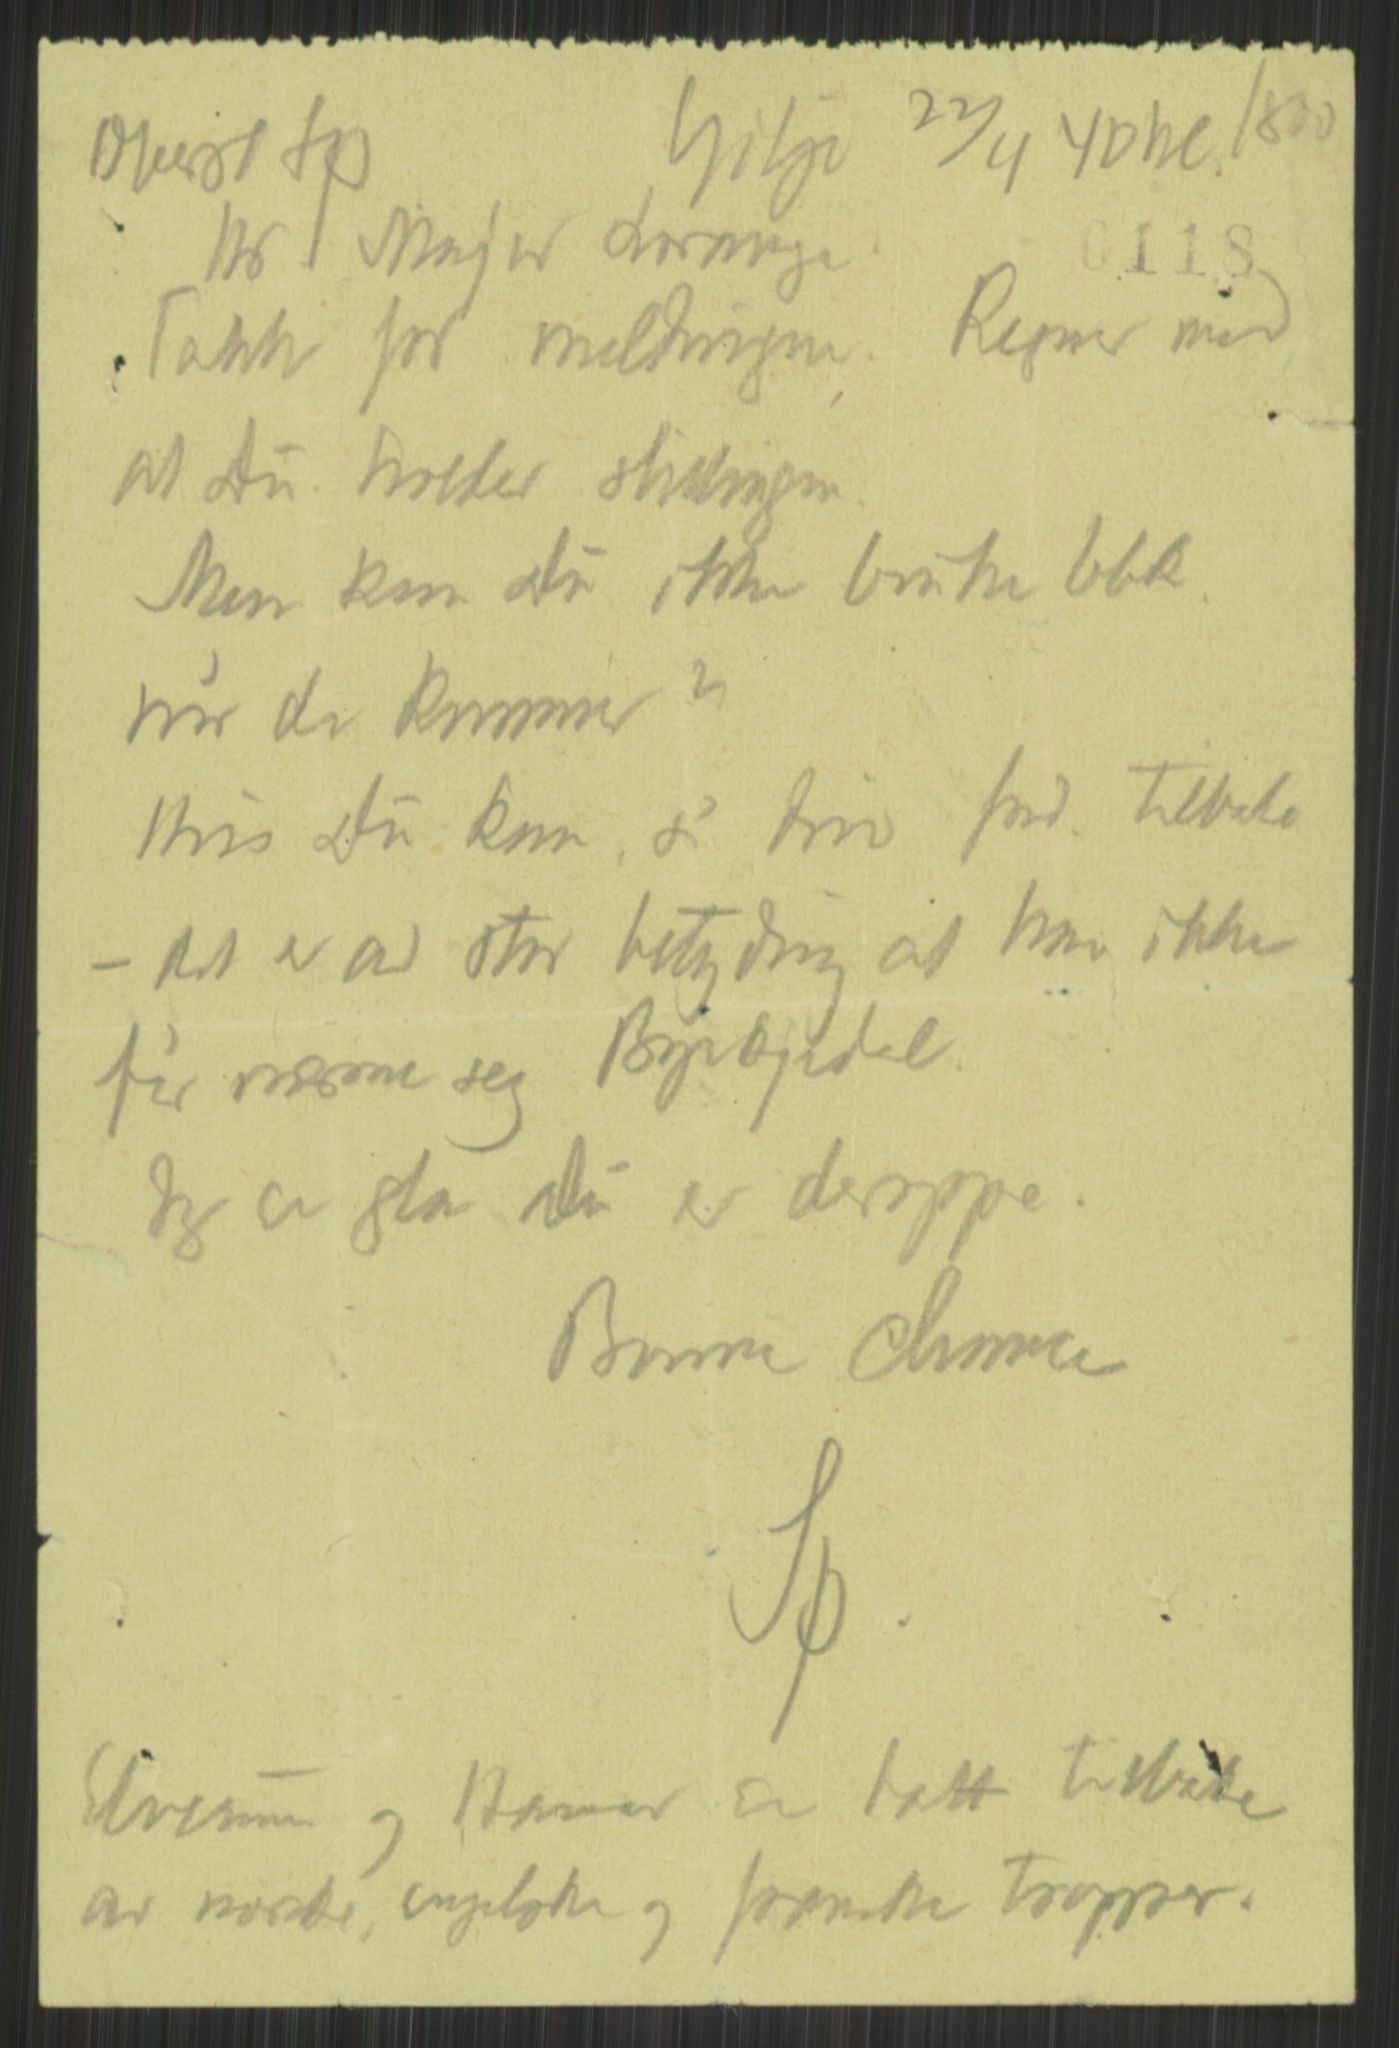 Oberst Sp Gilja 22/4 40 kl. 1800
Hr. Major Lorange. 0118
Takk for meldingen. Regner med
at Du holder stillingen.
Men kan Du ikke bruke
når de kommer?
Hvis Du kan, så driv fi. tilbake
– det er av stor betydning at han ikke
får nærme seg Byrkjedal.
Jeg er gla Du er deroppe.
Bonne chance
Sp.
Elverum og Hamar er tatt tilbake
av norske, engelske og franske tropper.